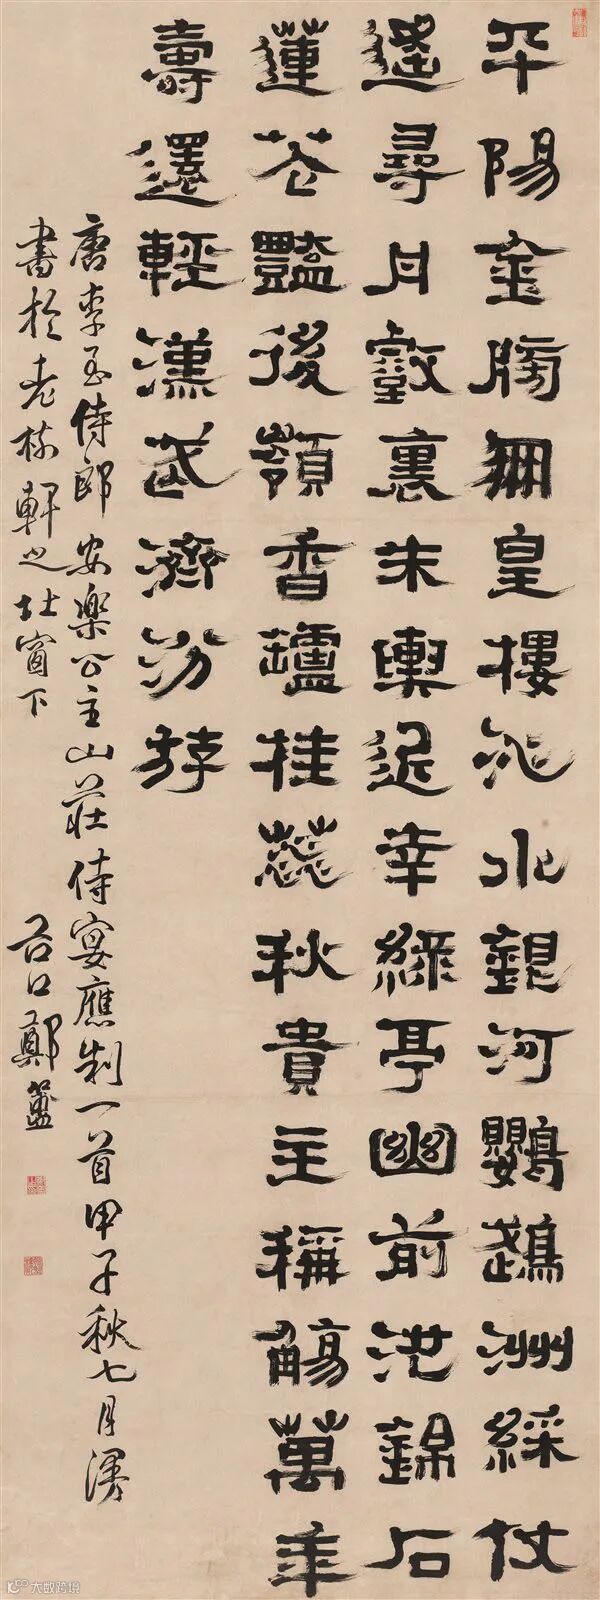 平陽金牓鳳皇樓沁水銀河鸚鵡洲綵仗
遙尋丹壑裏朱輿近幸綠亭幽前池錦石
蓮花豔後嶺香罏桂蕊秋貴主稱觴萬年
壽還輕漢武濟汾斿
唐李侍郎安樂公主山莊侍宴應制一首甲子秋七月漫
書於老梅軒之北窗下
谷口鄭簠
大数跨境